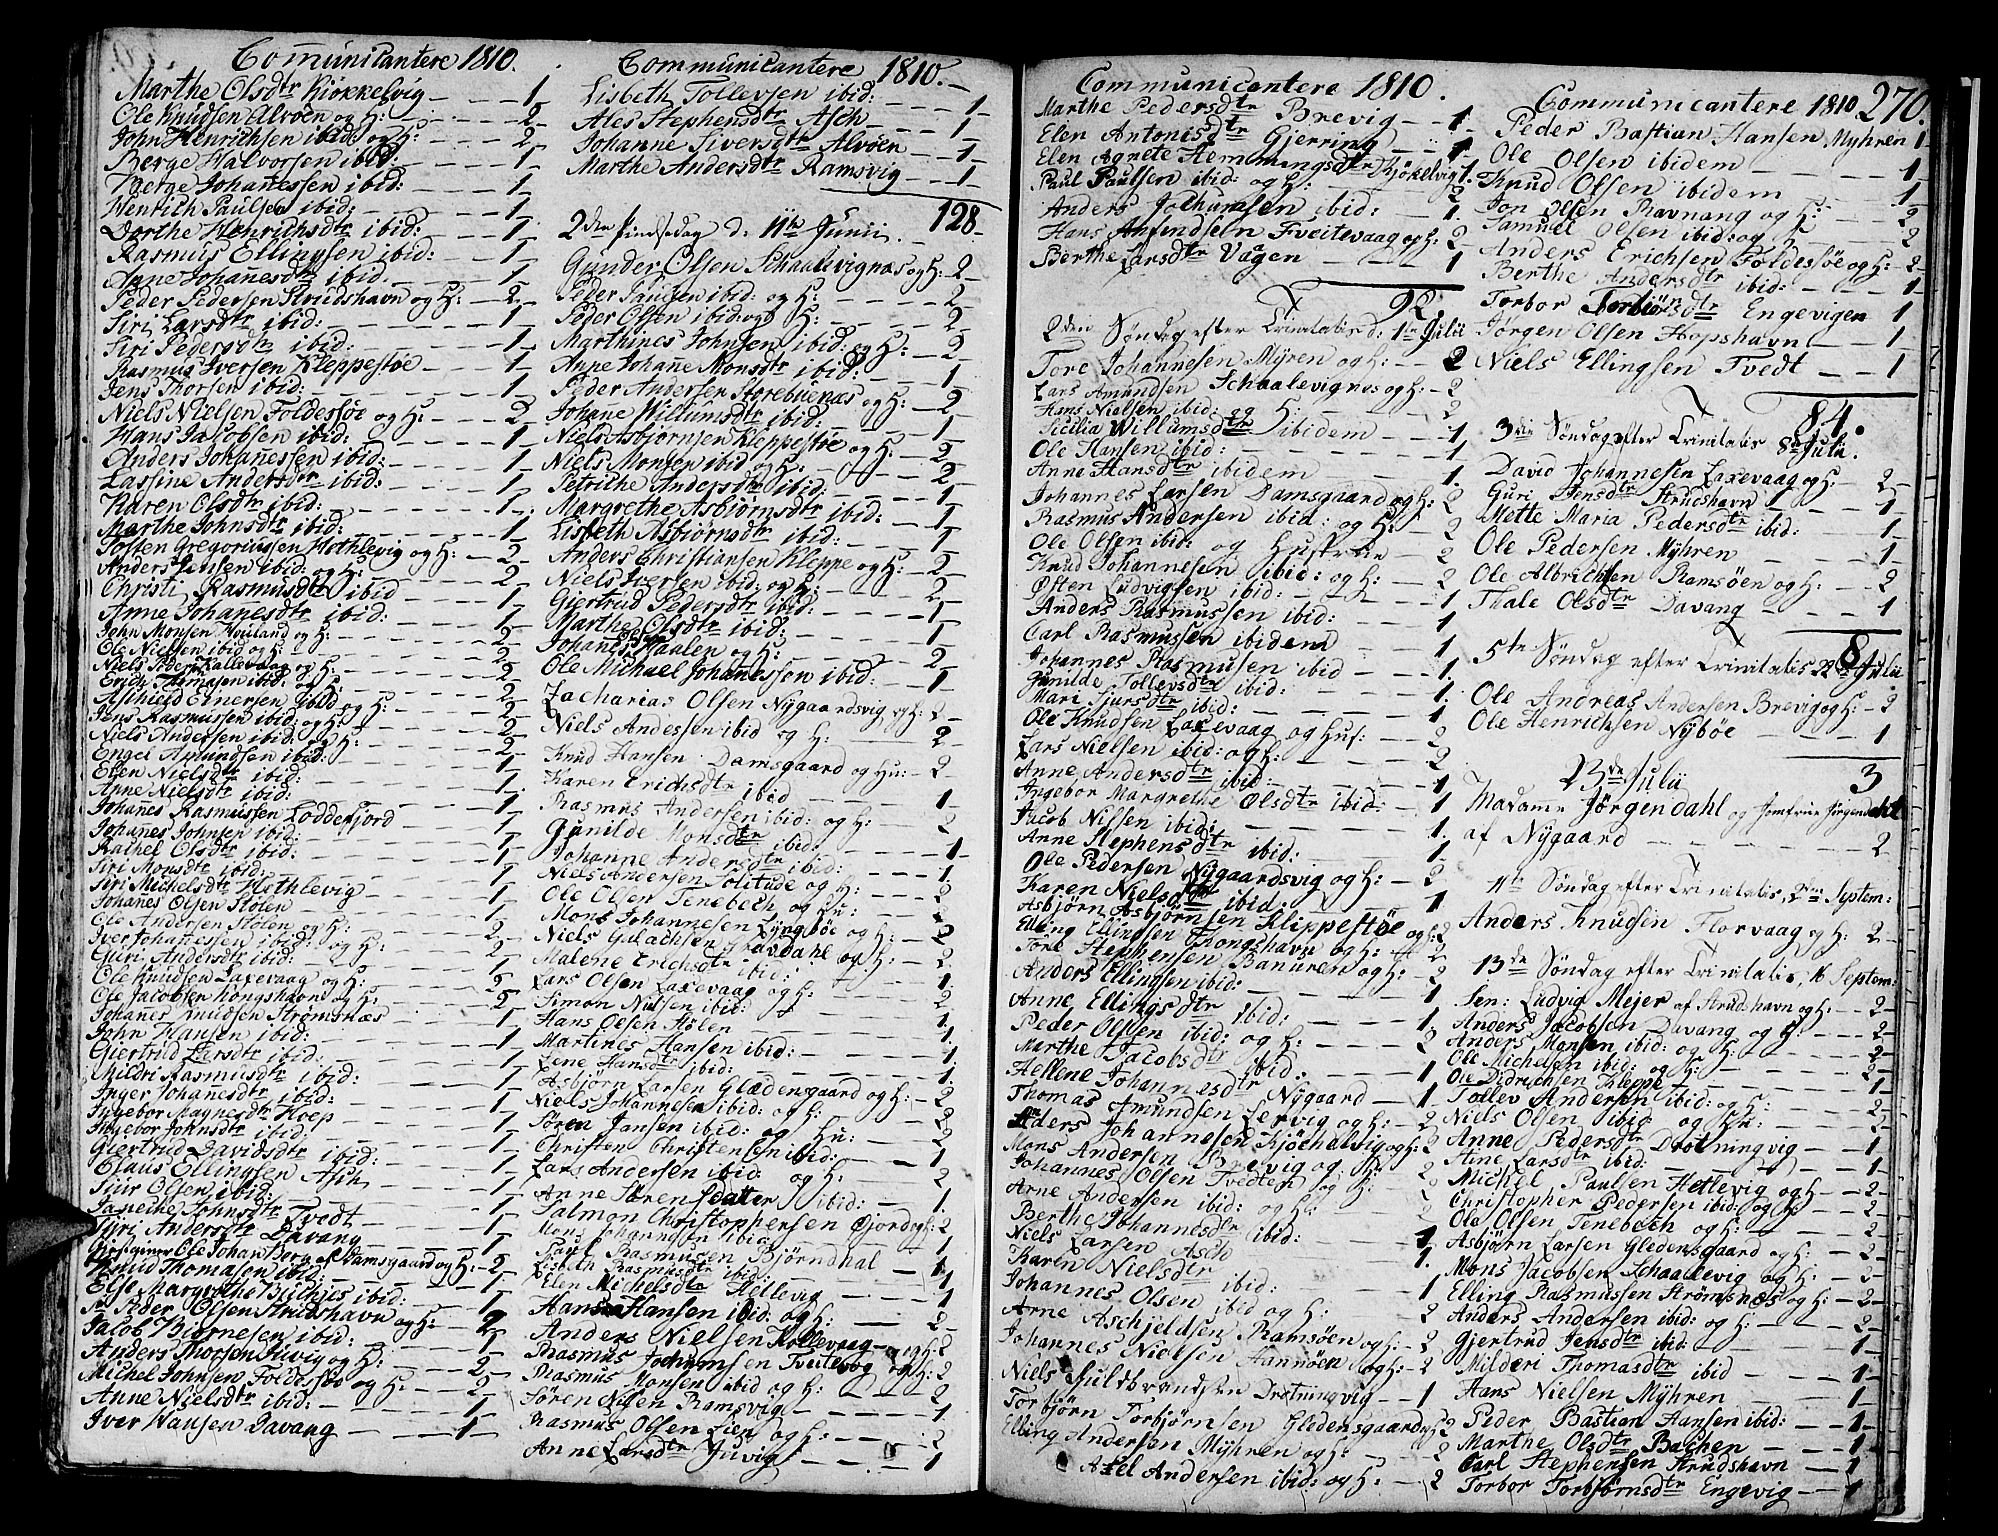 Communicantere 1810.
Marthe Olsdtr Kiøkkelvig - 1
Ole Knudsen Alvøen og H: - 2
John Henrichsen ibid og H: - 2
Berge Halvorsen ibid: - 1
Berge Johanessen ibid: - 1
Henrich Paulsen ibid: - 1
Dorthe Henrichsdtr ibid: - 1
Rasmus Ellingsen ibid: - 1
Anne Johanesdtr ibid. - 1
Peder Pedersen Strudshavn og H: - 2
Siri Larsdtr ibid: - 1
Siri Pedersdtr ibid: - 1
Rasmus Iversen Kleppestøe - 1
Jens Thorsen ibid: - 1
Niels Nielsen Foldessøe og H: - 2
Hans Jacobsen ibid: - 1
Anders Johanessen ibid: - 1
Lassine Andersdtr ibid: - 1
Karen Olsdtr ibid: - 1
Marthe Johnsdtr ibid: - 1
Tosten Gregoriussen Hethlevig og H: - 2
Anders Jansen ibid: og H: - 2
Christi Rasmusdtr ibid - 1
Anne Johanesdtr ibid: - 1
John Monsen Houland og H: - 2
Ole Nielsen ibid og H: - 2
Niels Peders: Kallevaag og H: - 2
Erich Thomasen ibid: og H: - 2
Aschield Einersen ibid - 2
Jens Rasmussen ibid: og H: - 2
Niels Andersen ibid: og H: - 2
Engel Amundsen ibid: - 1
Elen Nielsdtr ibid: - 1
Anne Nielsdtr ibid: - 1
Johanes Rasmussen Loddefjord - 1
Johanes Johnsen ibid: - 1
Rachel Olsdtr ibid: - 1
Siri Monsdtr ibid: - 1
Siri Michelsdtr Hethlevig - 1
Johanes Olsen Stølen - 1
Ole Andersen Stølen og H: - 2
Iver Johanessen ibid: og H: - 2
Guri Andersdtr ibid: - 1
Ole Knudsen Laxevaag og H: - 2
Ole Jacobsen Kongshavn og H: - 2
Johanes Knudsen Strømsnæs - 1
John Hansen ibid: - 1
Giertrud Larsdtr ibid: - 1
Mildri Rasmusdtr ibid: - 1
Inger Johanesdtr ibid: - 1
Ingebor Magnesdtr Hoep - 1
Ingebor Johnsdtr ibid: - 1
Giertrud Davidsdtr ibid: - 1
Claus Ellingsen Asch - 1
Siur Olsen ibid: - 1
Janniche Johnsdtr Tvedt - 1
Siri Andersdtr Davang - 1
Ole Johan Berg af Damsgaard og H: - 2
Knud Thomasen ibid: - 1
Else Margrethe ibid: - 1
Peder Olsen Strudshavn og H: - 2
Jacob Biørnesen ibid: - 1
Anders Thorsen Juvig og H: - 2
Michel Johnsen Foldessøe og H: - 2
Anne Nielsdtr ibid: - 1
Iver Hansen Davang - 1
Communicantere 1810.
Lisbeth Tollevsen ibid: - 1
Ales Stephensdtr Asch - 1
Johanne Siversdtr Alvøen - 1
Marthe Andersdtr Ramsvig - 1
128
2den Pindsedag d: 11te Junii
Gunder Olsen Schaalevignæs og H: 2
Peder Paulsen ibid: og H: - 2
Peder Olsen ibid: og H: - 2
Marthines Johnsen ibid: og H: - 2
Anne Johane Monsdtr ibid: - 1
Peder Andersen Storebuenæs og H: - 2
Johane Willumsdtr ibid: - 1
Niels Asbjørnsen Kleppestøe og H: - 2
Niels Monsen ibid og H: - 2
Petriche Andersdtr ibid: - 1
Margrethe Asbjørnsdtr ibid: - 1
Lisbeth Asbjørnsdtr ibid: - 1
Anders Christiansen Kleppe og H: - 2
Niels Iversen ibid: og H: - 2
Giertrud Pedersdtr ibid: - 1
Marthe Olsdtr ibid: - 1
Johanes Haalen og H: - 2
Ole Michael Johanessen ibid: - 1
Zacharias Olsen Nygaardsvig og H: - 2
Niels Andessen ibid og H: - 2
Knud Hansen Damsgaard og Hu: - 2
Karen Erichsdtr ibid - 1
Rasmus Andersen ibid: og H: - 2
Gunilde Monsdtr ibid: - 1
Johanne Andersdtr ibid: - 1
Niels Andersen Solitude og H: - 2
Ole Olsen Tenebech og Hu: - 2
Mons Johannesen Lyngbøe og H: - 2
Niels Gulachsen Gravdahl og H: - 2
Malene Erichsdtr ibid: - 1
Lars Olsen Laxevaag og H: - 2
Simon Nilsen ibid: - 1
Hans Olsen Stølen - 1
Martines Hansen ibid: - 1
Lene Hansdtr ibid: - 1
Asbjørn Larsen Glædensgaard og H: - 2
Niels Johannesen ibid: og H: - 2
Søren Jansen ibid: og Hu: - 2
Christen Christensen ibid: - 1
Lars Andersen ibid: og H: - 2
Anne Sørensdatter ibid: - 1
Salmon Christophersen Gjord og H: 2
Mons Johannesen ibid: - 1
Rasmusen Bjørndhal - 1
Lisbeth Rasmusdtr ibid: - 1
Elen Michelsdtr Hetlevig - 1
Hans Hansen ibid: og H: - 2
Anders Nielsen Kollevaag og H: 2
Rasmus Jochumsen Tveitevog og H: 2
Rasmus Monsen ibid og H: 2
Søren Nilsen Ramsvig - 1
Rasmus Olsen Lien og H: - 2
Anne Larsdtr Juvig - 1
Communicantere 1810.
Marthe Pedersdtr Brevig - 1
Elen Antonisdtr Gjerring - 1
Elen Agnete Hemmingsdtr Kjøkelvig 1
Paul Paulsen ibid: og H: - 2
Anders Jochumsen ibid: - 1
Hans Amundsen Tveitevaag og H: 2
Berthe Larsdtr Vågen - 1
92
2den Søndag efter Trinitatis d: 1te Julii
Tore Johannesen Myren og H: - 2
Lars Amundsen Schaalevignos og H: - 2
Hans Nielsen ibid: og H: - 2
Sicilia Willumsdtr ibidem - 1
Ole Hansen ibid: - 1
Anne Hansdtr ibidem - 1
Johannes Larsen Damsgaard og H: 2
Rasmus Andersen ibid: og H: 2
Ole Olsen ibid: og Hustrue - 2
Knud Johannesen ibid: og H: - 2
Østen Ludvigsen ibid: - 1
Anders Rasmussen ibid: - 1
Carl Rasmussen ibidem - 1
Johannes Rasmusen ibid: - 1
Gunilde Tollevsdtr ibid: - 1
Mari Sjursdtr ibid: - 1
Ole Knudsen Laxevaag og Hus: - 2
Lars Nielsen ibid: og H: - 2
Anne Andersdtr ibid: - 1
Ingebor Margrethe Olsdtr ibid: - 1
Jacob Nilsen ibid: - 1
Anne Stephensdtr ibid: - 1
Ole Pedersen Nygaardsvig og H: - 2
Karen Nielsdtr ibid: - 1
Asbjørn Asbjørnsen Klippestøe og H: 2
Elling Ellingsen Kongshavn og H: - 2
Tore Stephensen Banuren og H: - 2
Anders Ellingsen ibid: - 1
Anne Ellingsdtr ibid: - 1
Peder Olsen ibid: og H: - 2
Marthe Jacobsdtr ibid: - 1
Hellene Johannesdtr Nygaard - 1
Thomas Amundsen Lervig og H: - 2
Anders Johannesen Kjøchelvig og H: 2
Mons Andersen Brevig og H: 2
Johannes Olsen Tvedten og H: 2
Arne Andersen ibid: og H: 2
Berthe Johannesdtr ibid: - 1
Niels Larsen Asch - 1
Karen Nielsdtr ibid: - 1
Johannes Olsen ibid og H: 2
Arne Aschjeldsen Ramsøen og H: 2
Johannes Nielsen Hannøen og H: 2
Niels Huldbrandsen Drotningvig - 1
Torbjørn Torbjørnsen Gledensgaard og H 2
Elling Andersen Myhren og H: - 2
Axel Andersen ibid: og H: - 2
Communicantere 1810. 270.
Peder Bastian Hansen Myhren 1
Ole Olsen ibidem - 1
Knud Olsen ibidem - 1
Jon Olsen Ravnang og H: - 2
Samuel Olsen ibid: og H: - 2
Anders Erichsen Foldessøe og H: - 2
Berthe Andersdtr ibid: - 1
Torbor Torbiørnsdtr Engevigen 1
Jørgen Olsen Hopshavn - 1
Niels Ellingsen Tvedt - 1
84.
3die Søndag efter Trinitatis 8de Julii.
David Johannesen Laxevaag og H: 2
Guri Jensdtr Strudshavn - 1
Mette Maria Pedersdtr ibid: - 1
Ole Pedersen Myhren - 1
Ole Albrichtsen Ramsøen og H: - 2
Thale Olsdtr Davang - 1
8
5te Søndag efter Trinitatis 22de Julii.
Ole Andreas Andersen Brevig og H: - 2
Ole Henrichsen Nybøe - 1
3
23de Julii
Madame Jørgendahl og Jomfrue Jørgendahl
af Nygaard - 2
11te Søndag efter Trinitatis, 2den Septem:
Anders Knudsen Florvaag og H: - 2
13de Søndag efter Trinitatis, 16 Septem:
Sen: Ludvig Mejer af Strudshavn og H: - 2
Anders Jacobsen Davang og H: - 2
Anders Hansen ibid: og H: - 2
Ole Michelsen ibid: og H: - 2
Ole Didrichsen Kleppe - 1
Tollev Andersen ibid: og H: - 2
Niels Olsen ibid og Hu: - 2
Anne Pedersdtr Drotningvig - 1
Stine Larsdtr ibid: - 1
Michel Paulsen Hetlevig og H - 2
Christopher Pedersen ibid: og H: - 2
Ole Olsen Tenebech og H: - 2
Asbjørn Larsen Gledensgaard og H: - 2
Mons Jacobsen Schaalevig og H: - 2
Elling Rasmussen Strømsnæs og H: - 2
Anders Andersen ibid: og H: - 2
Gjertrud Jensdtr ibid: - 1
Milderi Thomasdtr ibid - 1
Hans Nielsen Myhren - 1
Peder Bastian Hansen ibid: - 1
Marthe Olsdtr Bachen - 1
Carl Stephensen Strudshavn - 1
Torbor Torbjørnsdtr Engevig - 1